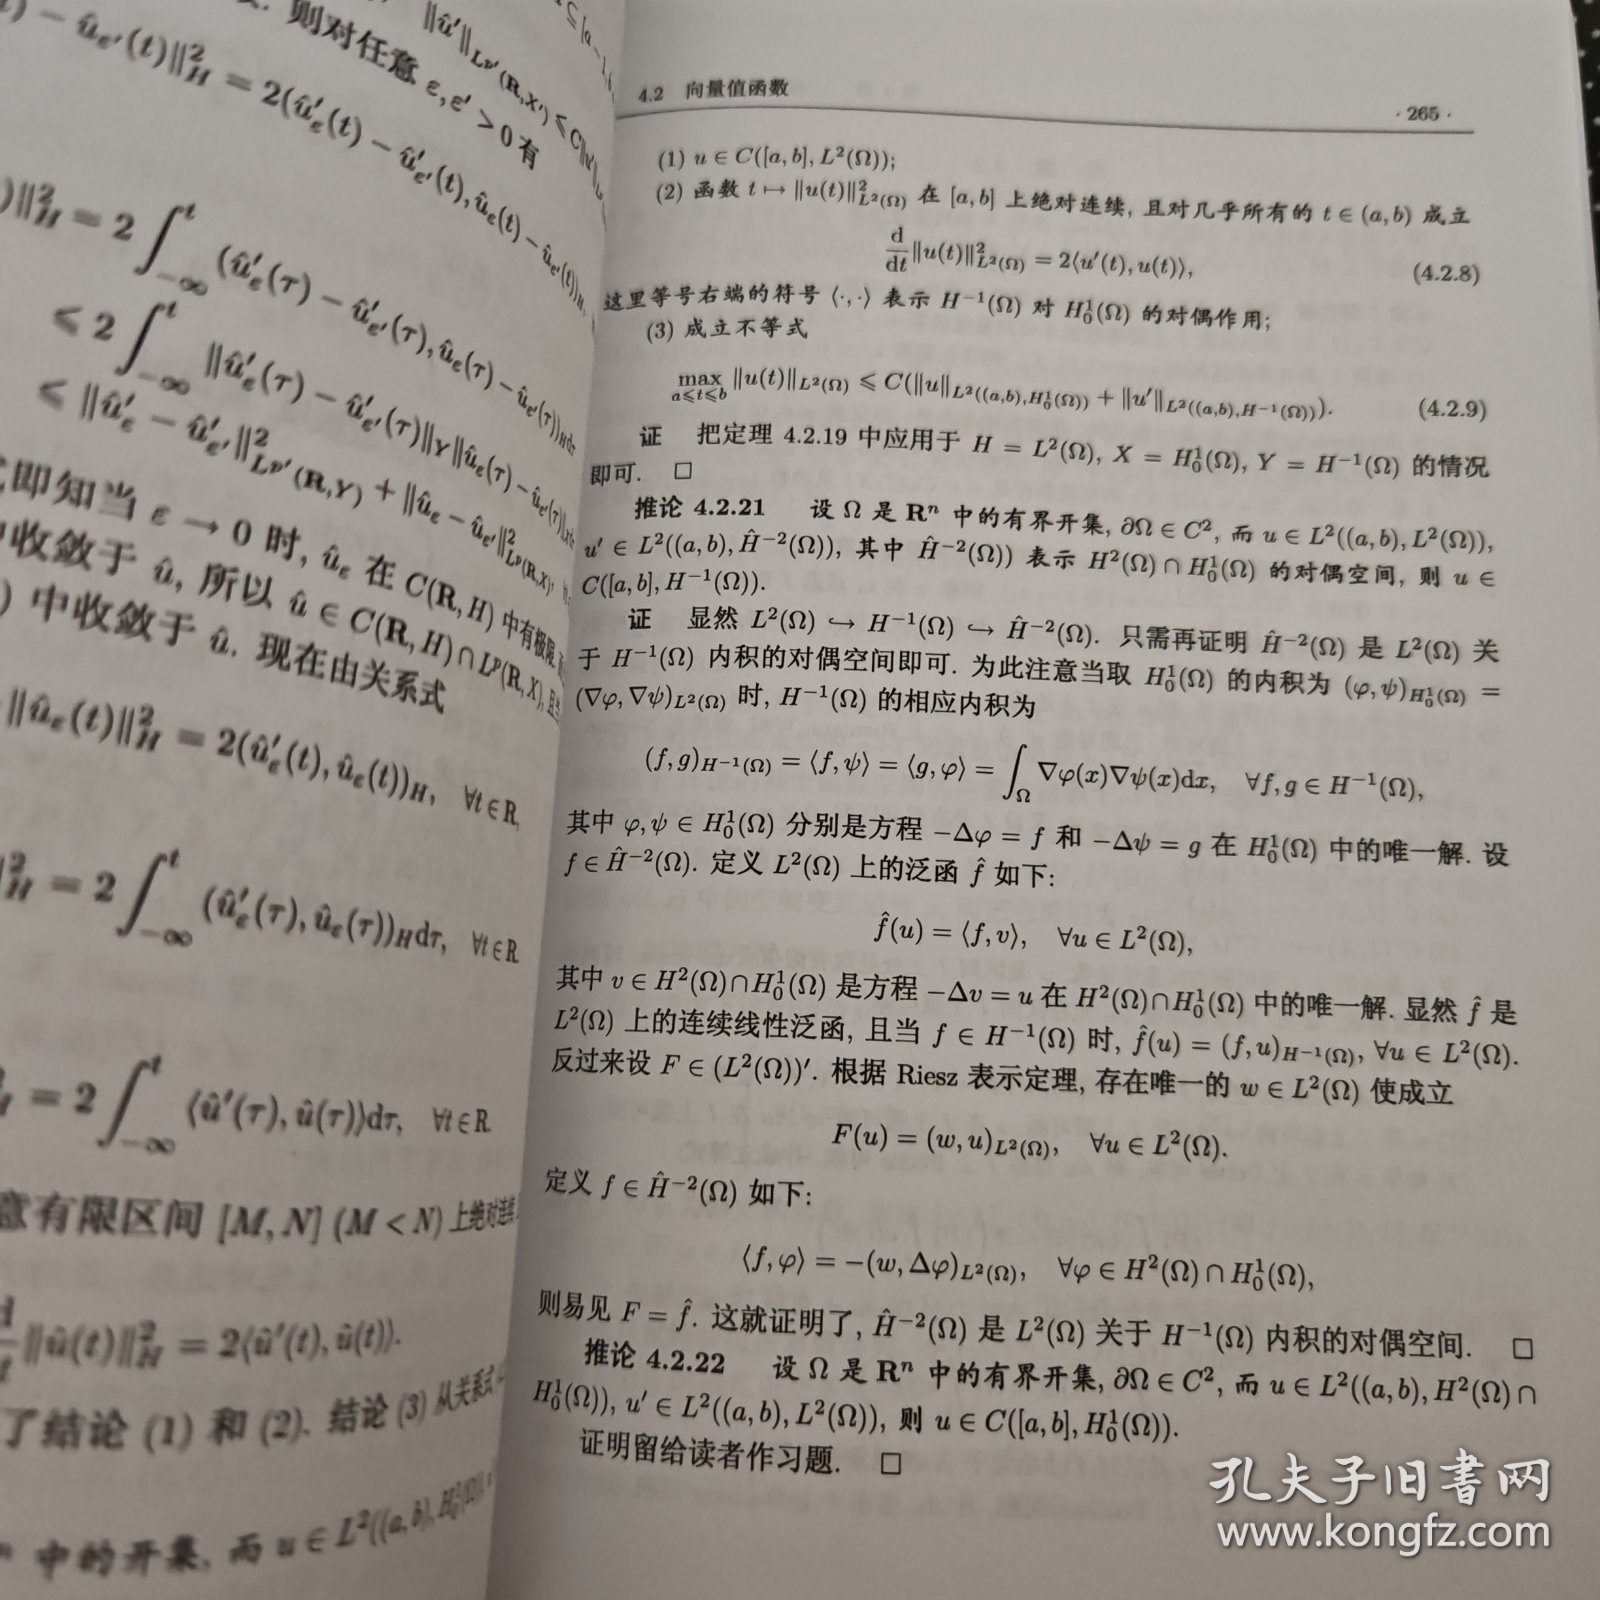 则对任意 ε,ε' > 0 有
−∞
收敛于 û, 所以 û ∈ C(R, H) ∩ L^p(R, X), 且
中收敛于 û. 现在由关系式
‖û_ε(t)‖²_H = 2(û'_ε(t), û_ε(t))_H, ∀t ∈ R,
²_H = 2∫_{−∞}^t (û'_ε(τ), û_ε(τ))_H dτ, ∀t ∈ R.
= 2∫_{−∞}^t ⟨û'(τ), û(τ)⟩dτ, ∀t ∈ R.
意有限区间 [M, N] (M < N) 上绝对连续
‖û(t)‖²_H = 2⟨û'(t), û(t)⟩.
了结论 (1) 和 (2). 结论 (3) 从关系式
中的开集, 而 u ∈ L²((a, b), H¹₀(Ω)),
4.2 向量值函数 · 265 ·
(1) u ∈ C([a, b], L²(Ω));
(2) 函数 t ↦ ‖u(t)‖²_{L²(Ω)} 在 [a, b] 上绝对连续, 且对几乎所有的 t ∈ (a, b) 成立
d/dt ‖u(t)‖²_{L²(Ω)} = 2⟨u'(t), u(t)⟩, (4.2.8)
这里等号右端的符号 ⟨·, ·⟩ 表示 H⁻¹(Ω) 对 H¹₀(Ω) 的对偶作用;
(3) 成立不等式
max_{a⩽t⩽b} ‖u(t)‖_{L²(Ω)} ⩽ C(‖u‖_{L²((a,b),H¹₀(Ω))} + ‖u'‖_{L²((a,b),H⁻¹(Ω))}). (4.2.9)
证 把定理 4.2.19 中应用于 H = L²(Ω), X = H¹₀(Ω), Y = H⁻¹(Ω) 的情况
即可. □
推论 4.2.21 设 Ω 是 Rⁿ 中的有界开集, ∂Ω ∈ C², 而 u ∈ L²((a, b), L²(Ω)),
u' ∈ L²((a, b), Ĥ⁻²(Ω)), 其中 Ĥ⁻²(Ω)) 表示 H²(Ω) ∩ H¹₀(Ω) 的对偶空间, 则 u ∈
C([a, b], H⁻¹(Ω)).
证 显然 L²(Ω) ↪ H⁻¹(Ω) ↪ Ĥ⁻²(Ω). 只需再证明 Ĥ⁻²(Ω) 是 L²(Ω) 关
于 H⁻¹(Ω) 内积的对偶空间即可. 为此注意当取 H¹₀(Ω) 的内积为 (φ, ψ)_{H¹₀(Ω)} =
(∇φ, ∇ψ)_{L²(Ω)} 时, H⁻¹(Ω) 的相应内积为
(f, g)_{H⁻¹(Ω)} = ⟨f, ψ⟩ = ⟨g, φ⟩ = ∫_Ω ∇φ(x)∇ψ(x)dx, ∀f, g ∈ H⁻¹(Ω),
其中 φ, ψ ∈ H¹₀(Ω) 分别是方程 −Δφ = f 和 −Δψ = g 在 H¹₀(Ω) 中的唯一解. 设
f ∈ Ĥ⁻²(Ω). 定义 L²(Ω) 上的泛函 f̂ 如下:
f̂(u) = ⟨f, v⟩, ∀u ∈ L²(Ω),
其中 v ∈ H²(Ω)∩H¹₀(Ω) 是方程 −Δv = u 在 H²(Ω)∩H¹₀(Ω) 中的唯一解. 显然 f̂ 是
L²(Ω) 上的连续线性泛函, 且当 f ∈ H⁻¹(Ω) 时, f̂(u) = (f, u)_{H⁻¹(Ω)}, ∀u ∈ L²(Ω).
反过来设 F ∈ (L²(Ω))'. 根据 Riesz 表示定理, 存在唯一的 w ∈ L²(Ω) 使成立
F(u) = (w, u)_{L²(Ω)}, ∀u ∈ L²(Ω).
定义 f ∈ Ĥ⁻²(Ω) 如下:
⟨f, φ⟩ = −(w, Δφ)_{L²(Ω)}, ∀φ ∈ H²(Ω) ∩ H¹₀(Ω),
则易见 F = f̂. 这就证明了, Ĥ⁻²(Ω) 是 L²(Ω) 关于 H⁻¹(Ω) 内积的对偶空间. □
推论 4.2.22 设 Ω 是 Rⁿ 中的有界开集, ∂Ω ∈ C², 而 u ∈ L²((a, b), H²(Ω) ∩
H¹₀(Ω)), u' ∈ L²((a, b), L²(Ω)), 则 u ∈ C([a, b], H¹₀(Ω)).
证明留给读者作习题. □
孔夫子旧书网
www.kongfz.com